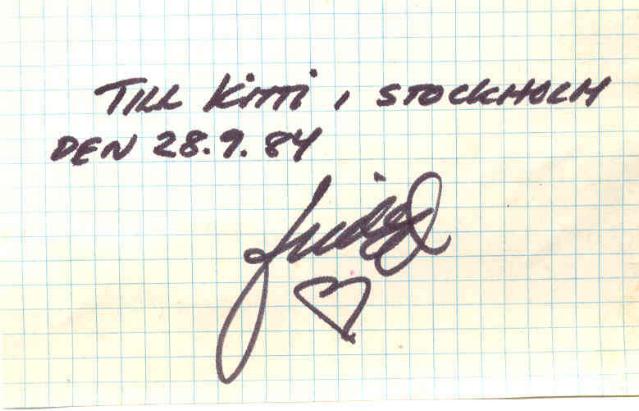 TILL Kitti, STOCKHOLM
DEN 28.9.84